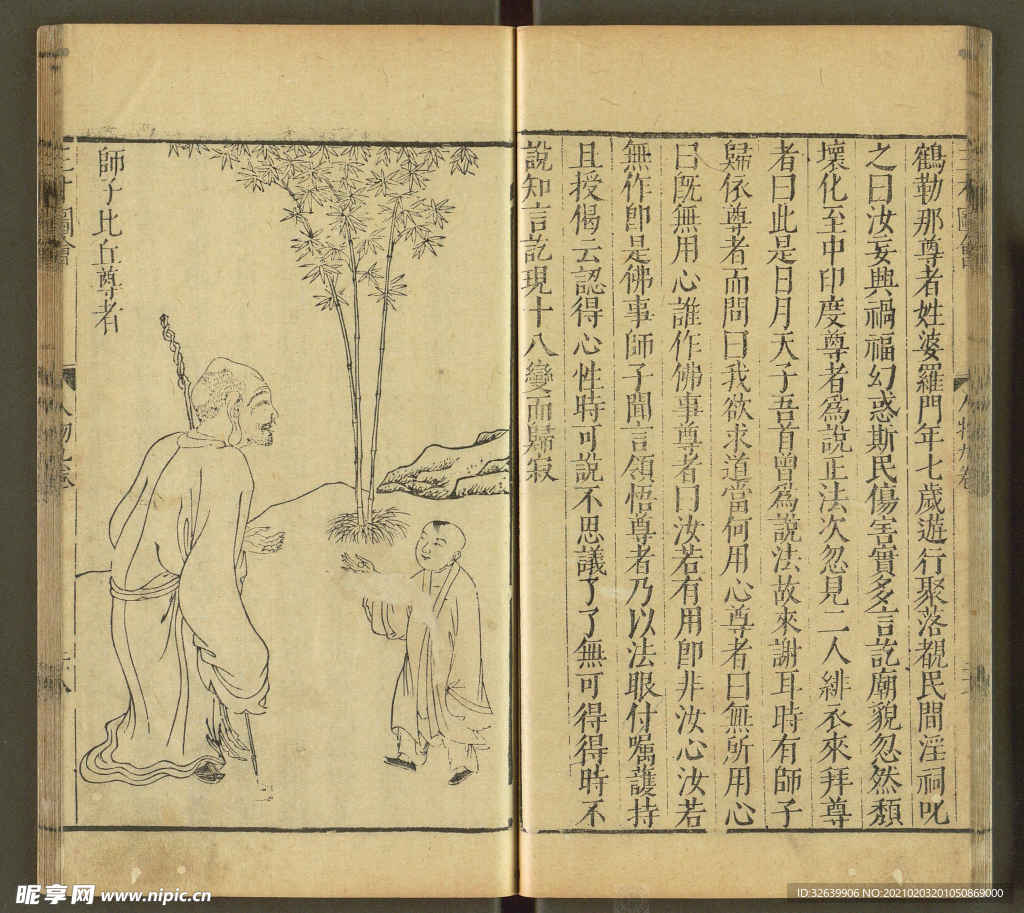 鶴勒那尊者姓婆羅門年七歲遊行聚落覩民間淫祠叱
之曰汝妄興禍福幻惑斯民傷害實多言訖廟貌忽然頹
壞化至中印度尊者為說正法次忽見二人緋衣來拜尊
者曰此是日月天子吾首曾為說法故來謝耳時有師子
歸依尊者而問曰我欲求道當何用心尊者曰無所用心
曰既無用心誰作佛事尊者曰汝若有用卽非汝心汝若
無作卽是佛事師子聞言領悟尊者乃以法眼付囑護持
且授偈云認得心性時可說不思議了了無可得得時不
說知言訖現十八變而歸寂
師子比丘尊者
昵享网 www.nipic.cn
ID:32639906 NO:20210203201050869000